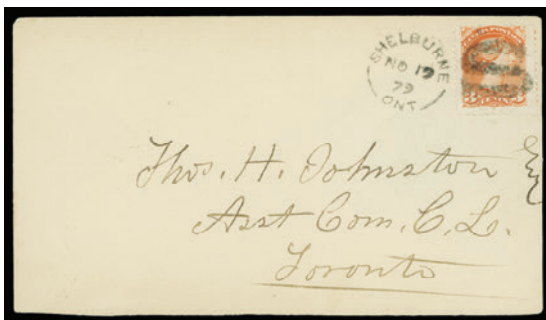 SHELBURNE
NO 19
79
ONT
3 CENTS 3
Thos. H. Johnston Esq
Asst Com. C. L.
Toronto